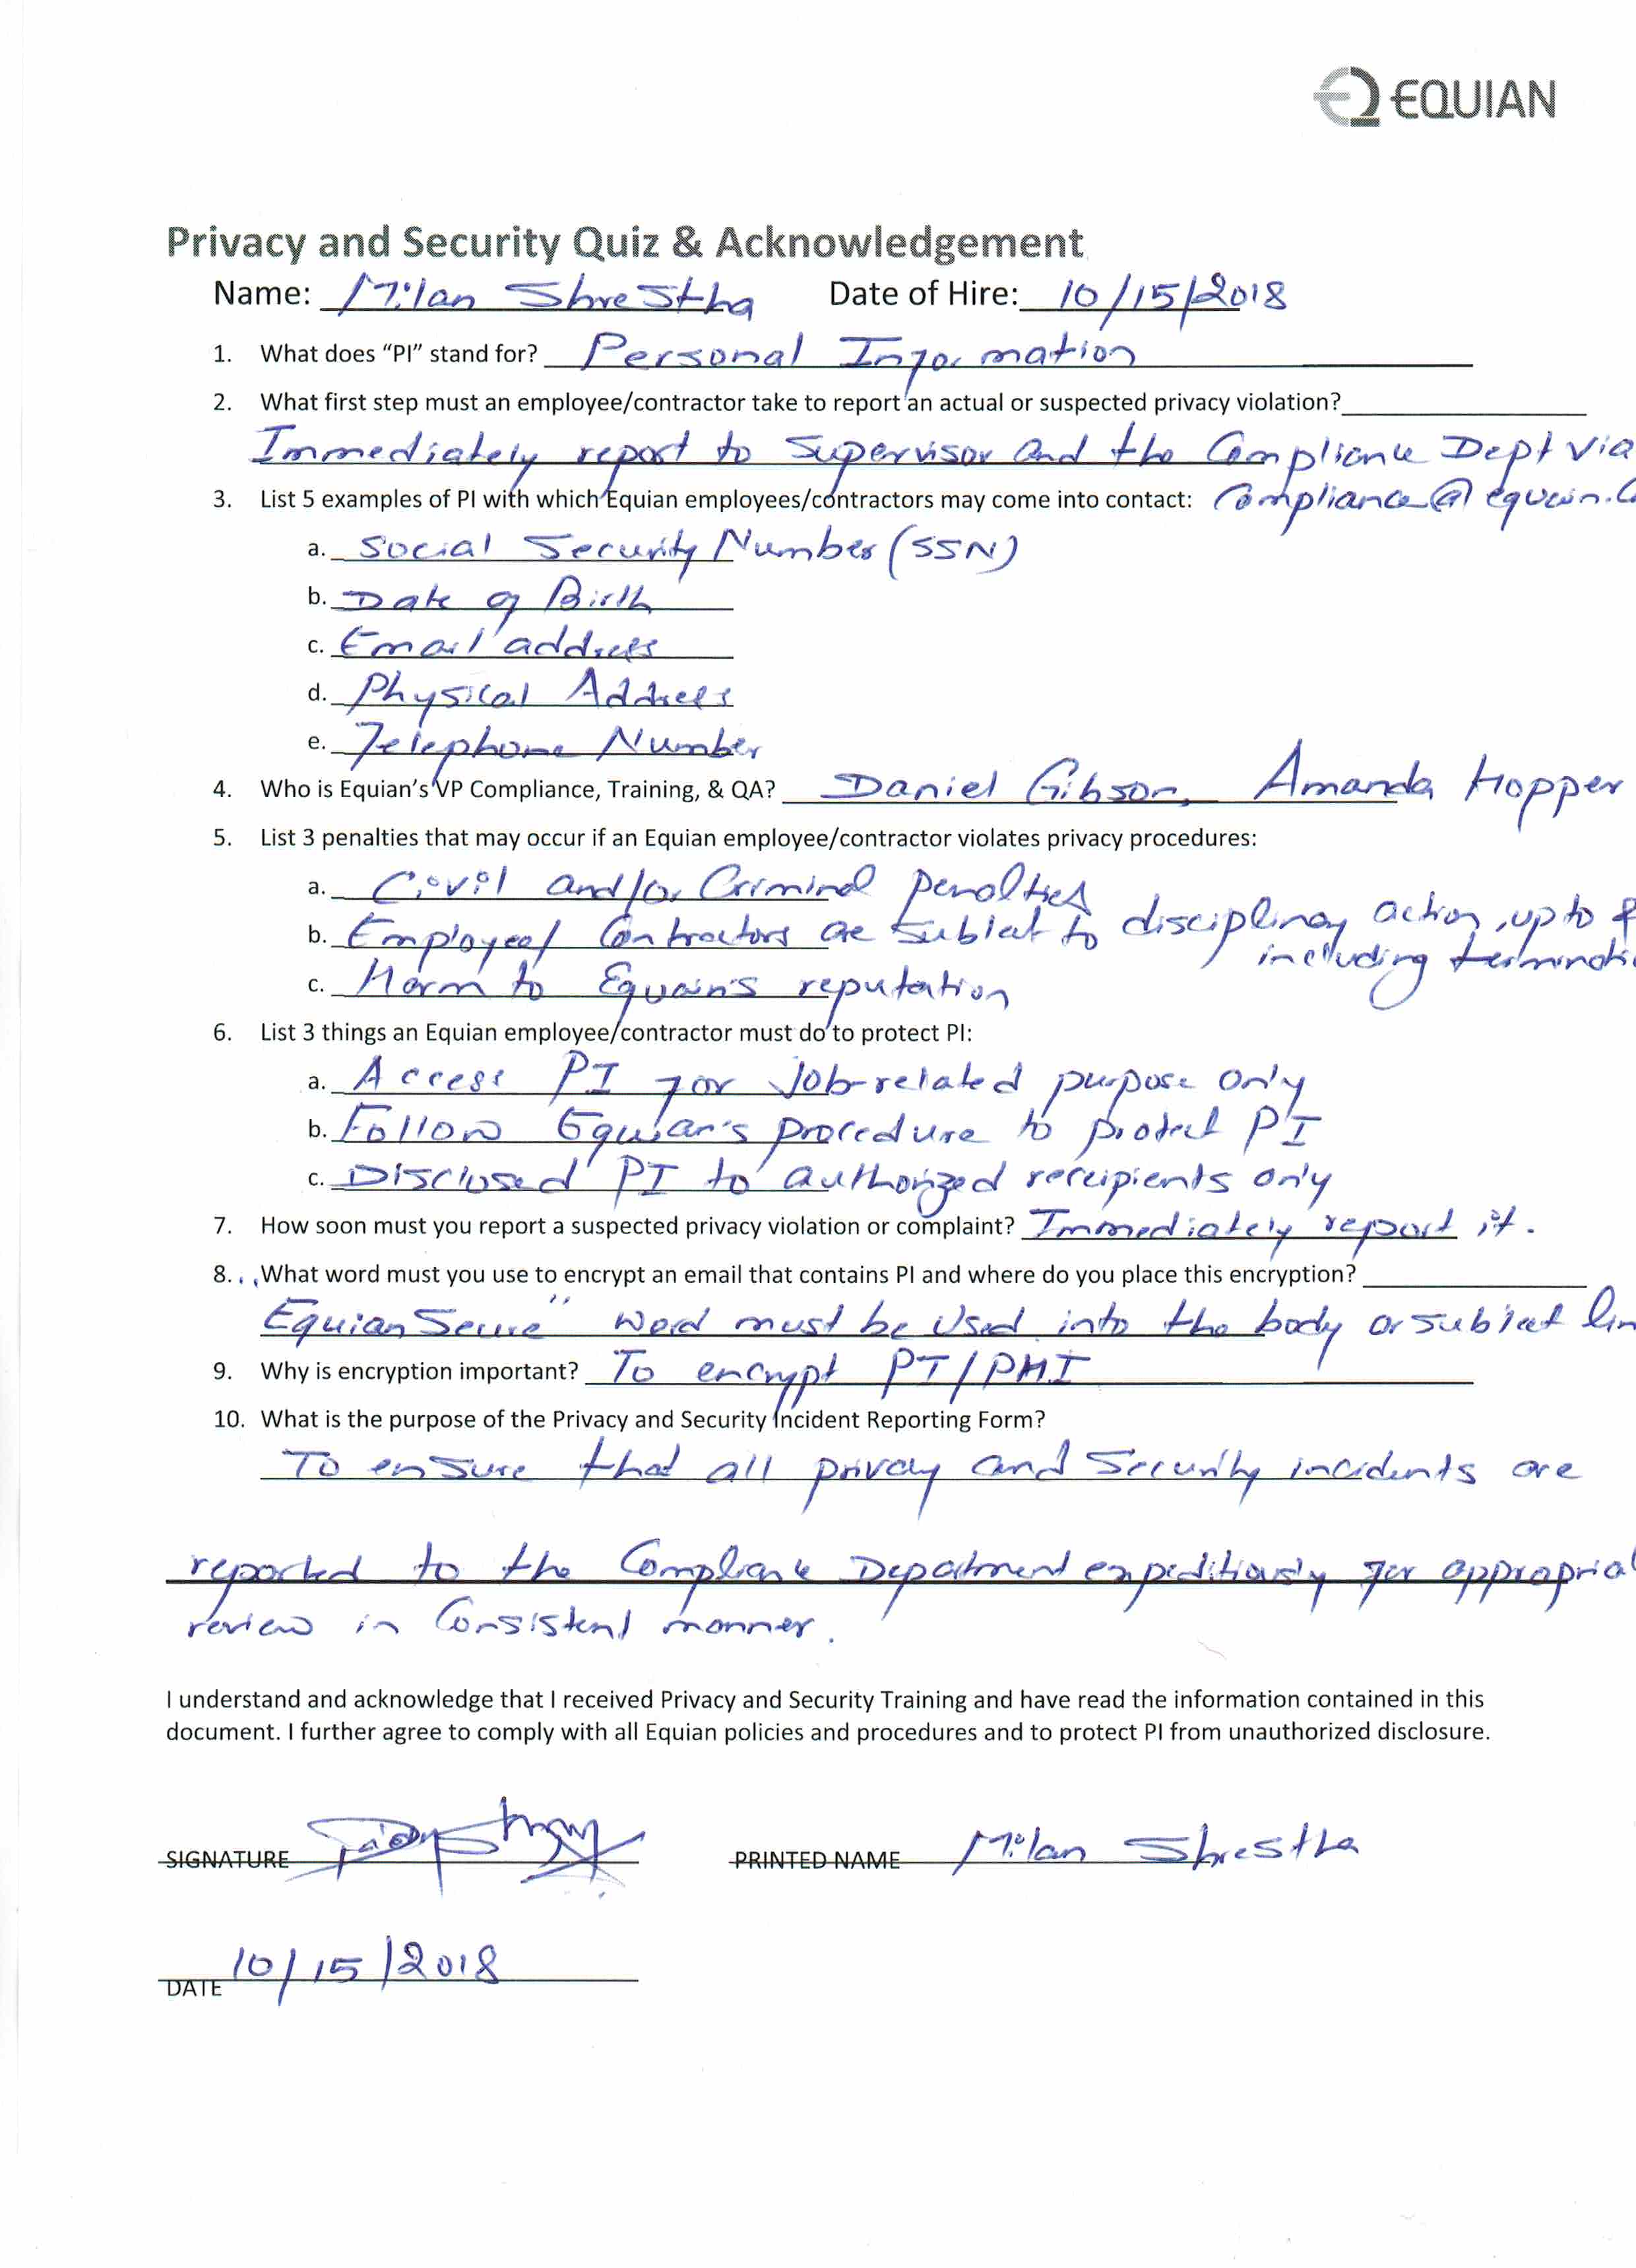 EQUIAN
Privacy and Security Quiz & Acknowledgement
Name: Milan Shrestha Date of Hire: 10/15/2018
1. What does “PI” stand for? Personal Information
2. What first step must an employee/contractor take to report an actual or suspected privacy violation?
Immediately report to Supervisor and the Compliance Dept via
3. List 5 examples of PI with which Equian employees/contractors may come into contact: Compliance@equain.
a. Social Security Number (SSN)
b. Date of Birth
c. Email address
d. Physical Address
e. Telephone Number
4. Who is Equian’s VP Compliance, Training, & QA? Daniel Gibson, Amanda Hopper
5. List 3 penalties that may occur if an Equian employee/contractor violates privacy procedures:
a. Civil and/or Criminal penalties
b. Employee/Contractors are subject to disciplinary action, up to &
including
c. Harm to Equain's reputation
6. List 3 things an Equian employee/contractor must do to protect PI:
a. Access PI for Job-related purpose only
b. Follow Equian's procedure to protect PI
c. Disclosed PI to authorized recipients only
7. How soon must you report a suspected privacy violation or complaint? Immediately report it.
8. What word must you use to encrypt an email that contains PI and where do you place this encryption?
"EquianSecure" word must be Used into the body or subject
9. Why is encryption important? To encrypt PI/PHI
10. What is the purpose of the Privacy and Security Incident Reporting Form?
To ensure that all privacy and Security incidents are
reported to the Compliance Department expeditiously for
review in Consistent manner.
I understand and acknowledge that I received Privacy and Security Training and have read the information contained in this
document. I further agree to comply with all Equian policies and procedures and to protect PI from unauthorized disclosure.
SIGNATURE PRINTED NAME Milan Shrestha
DATE 10/15/2018